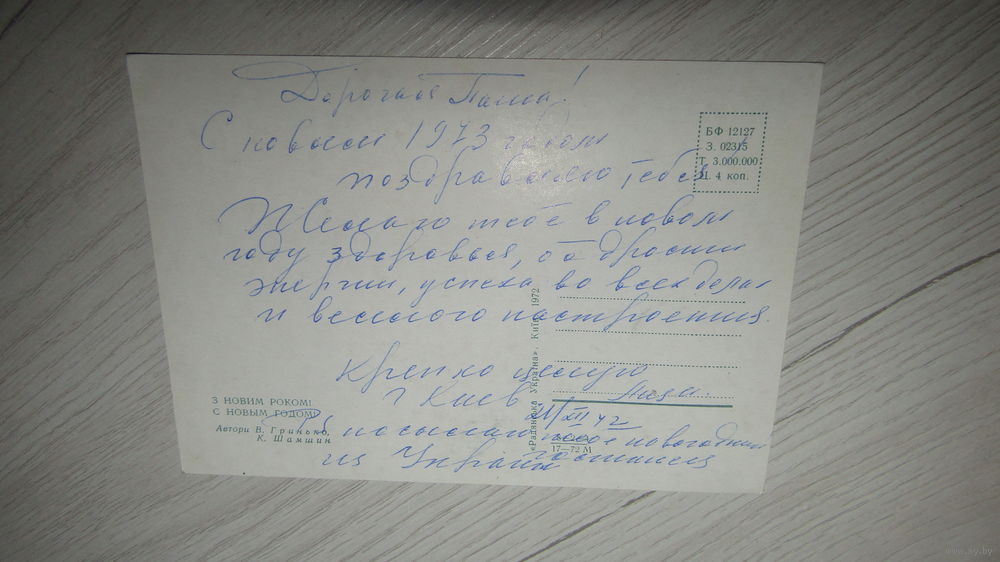 Дорогая Паша!
С новым 1973 годом
поздравляю тебя
Желаю тебе в новом
году здоровья, бодрости
энергии, успеха во всех делах
и веселого настроения.
Крепко целую
г Киев
21/XII 72
Я посылаю тебе новогодний
гостинец
из Украины
БФ 12127
З. 02315
Т. 3.000.000
Ц. 4 коп.
«Радянська Україна». Київ 1972
З НОВИМ РОКОМ!
С НОВЫМ ГОДОМ!
Автори В. Гринько,
К. Шамшин
17—72 М
www.ay.by